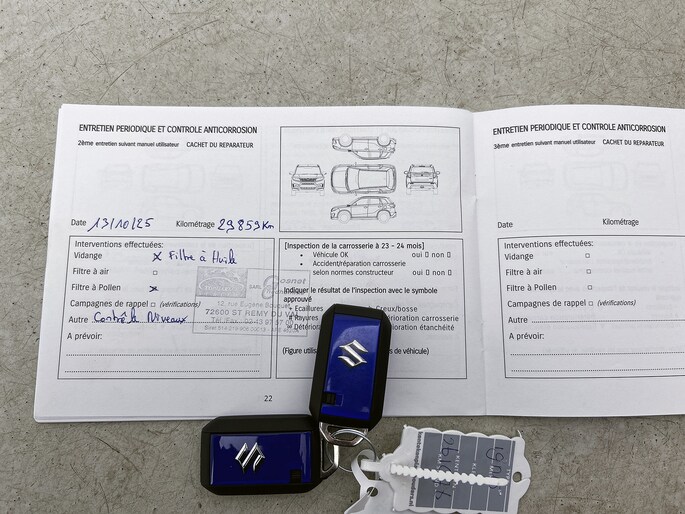 ENTRETIEN PERIODIQUE ET CONTROLE ANTICORROSION
2ème entretien suivant manuel utilisateur CACHET DU REPARATEUR
Date 13/10/25 Kilométrage 29859 Km
Interventions effectuées:
Vidange x Filtre à Huile
Filtre à air
Filtre à Pollen x
Campagnes de rappel (vérifications)
Autre Contrôle Niveaux
A prévoir:
SARL
12, rue Eugène Bouquet
72600 ST REMY DU VAL
22
[Inspection de la carrosserie à 23 - 24 mois]
• Véhicule OK oui non
• Accident/réparation carrosserie
selon normes constructeur oui non
Indiquer le résultat de l'inspection avec le symbole
approuvé
Ecaillures Creux/bosse
# Rayures carrosserie
étanchéité
(Figure de véhicule)
ENTRETIEN PERIODIQUE ET CONTROLE ANTICORROSION
3ème entretien suivant manuel utilisateur CACHET DU REPARATEUR
Date Kilométrage
Interventions effectuées:
Vidange
Filtre à air
Filtre à Pollen
Campagnes de rappel (vérifications)
Autre
A prévoir: